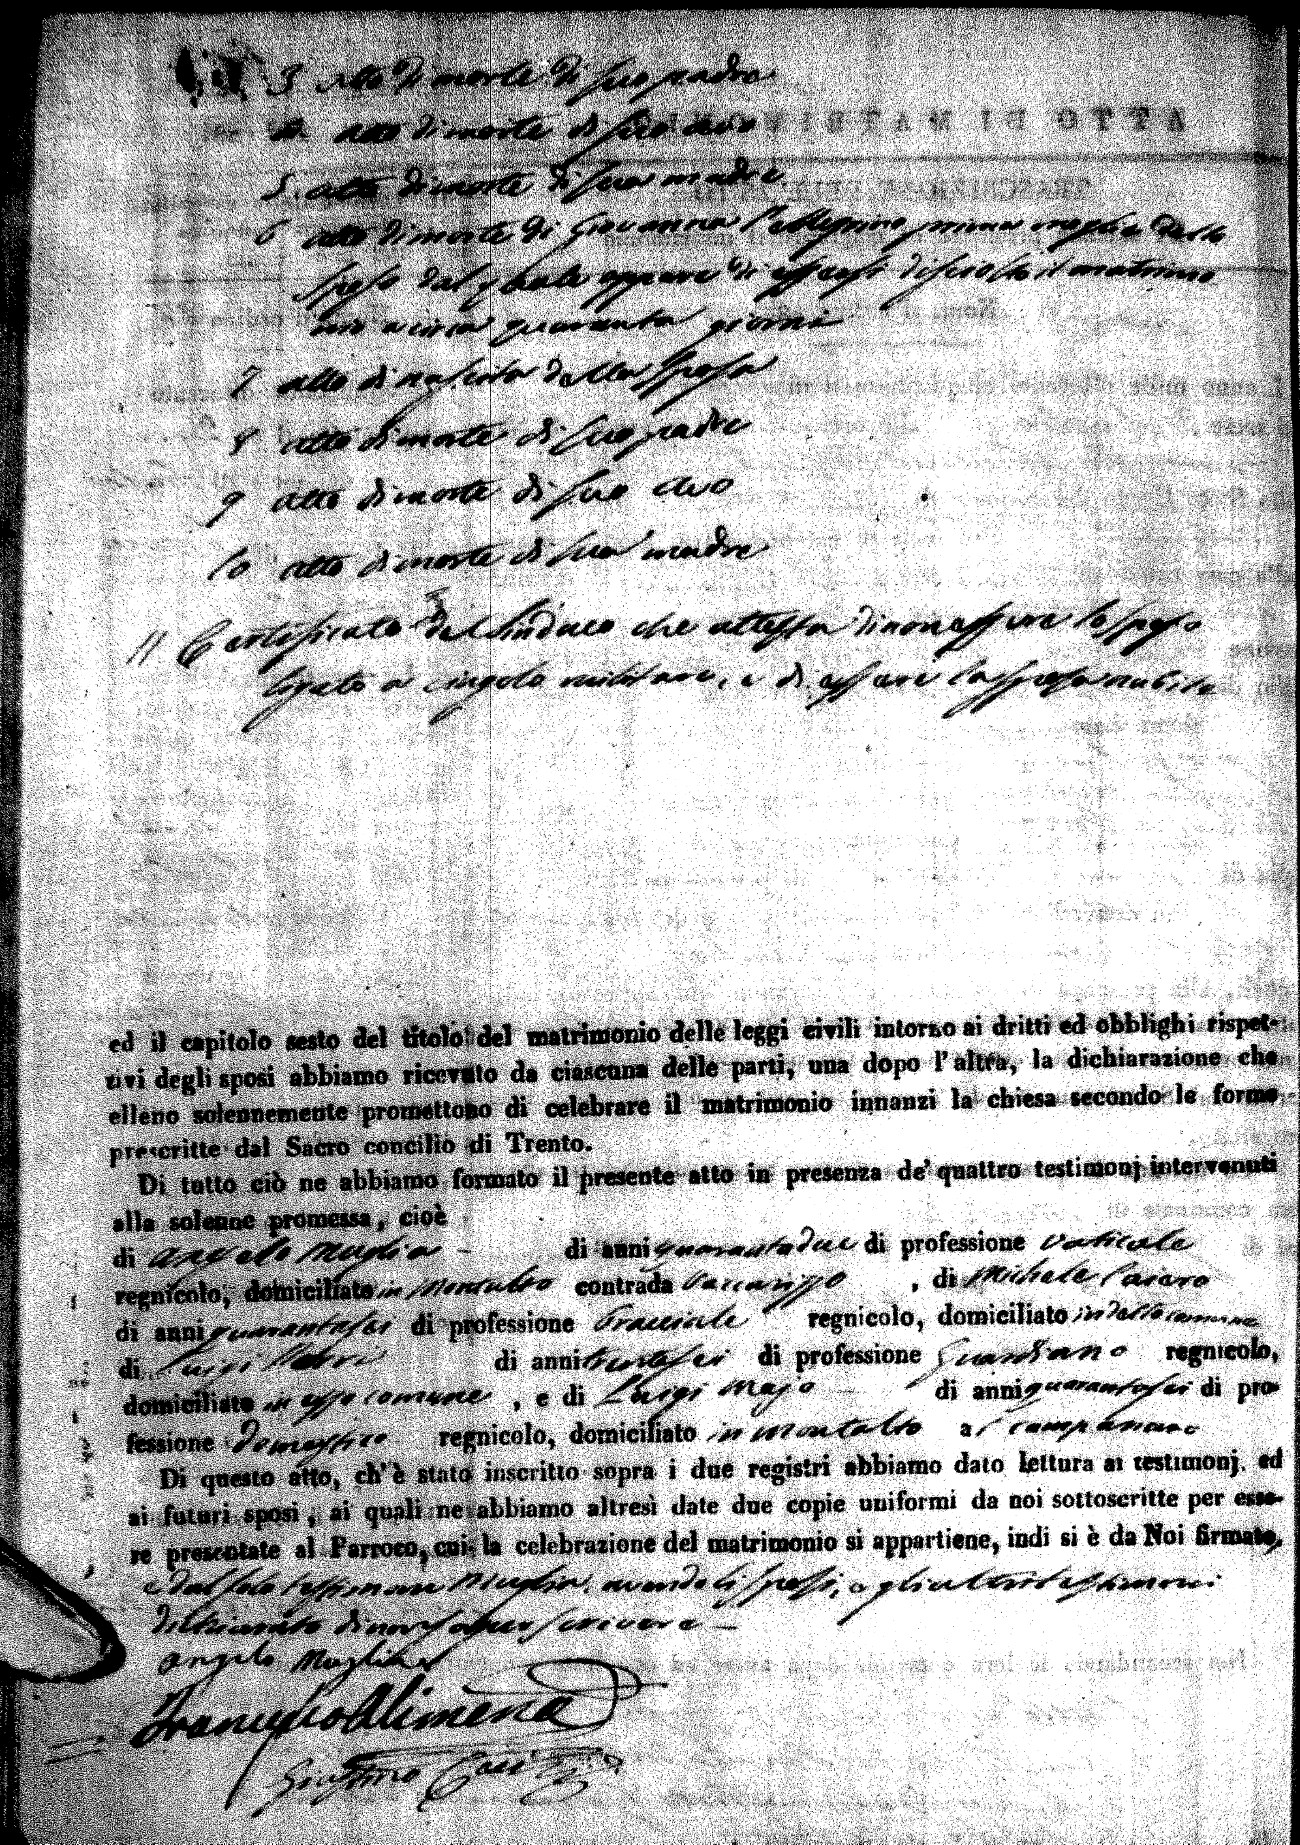 3 atto di morte di suo padre
4 atto di morte di suo avo
5. atto di morte di sua madre
6 atto di morte di Giovanna Pellegrino prima moglie dello
sposo dal quale appare di essersi disciolto il matrimo
nio a circa quaranta giorni
7 atto di nascita della sposa
8 atto di morte di suo padre
9 atto di morte di suo avo
10 atto di morte di sua madre
11 Certificato del Sindaco che attesta di non essere lo sposo
legato a cingolo militare, e di essere la sposa nubile
ed il capitolo sesto del titolo del matrimonio delle leggi civili intorno ai dritti ed obblighi rispet-
tivi degli sposi abbiamo ricevuto da ciascuna delle parti, una dopo l'altra, la dichiarazione che
elleno solennemente promettono di celebrare il matrimonio innanzi la chiesa secondo le forme
prescritte dal Sacro concilio di Trento.
Di tutto ciò ne abbiamo formato il presente atto in presenza de' quattro testimonj intervenuti
alla solenne promessa, cioè
di Angelo Muglia di anni quarantadue di professione vaticale
regnicolo, domiciliato in Montalto contrada Vaccarizzo, di Michele
di anni quarantasei di professione Bracciale regnicolo, domiciliato in detto comune
di Luigi di anni trentasei di professione Guardiano regnicolo,
domiciliato in esso comune, e di Luigi Majo di anni quarantasei di pro-
fessione domestico regnicolo, domiciliato in Montalto al campanaro
Di questo atto, ch'è stato inscritto sopra i due registri abbiamo dato lettura ai testimonj. ed
ai futuri sposi, ai quali ne abbiamo altresì date due copie uniformi da noi sottoscritte per esse-
re presentate al Parroco, cui la celebrazione del matrimonio si appartiene, indi si è da Noi firmato,
e dal solo testimone Muglia, avendo li sposi, e gli altri testimoni
dichiarato di non saper scrivere
Angelo Muglia
Francesco Alimena